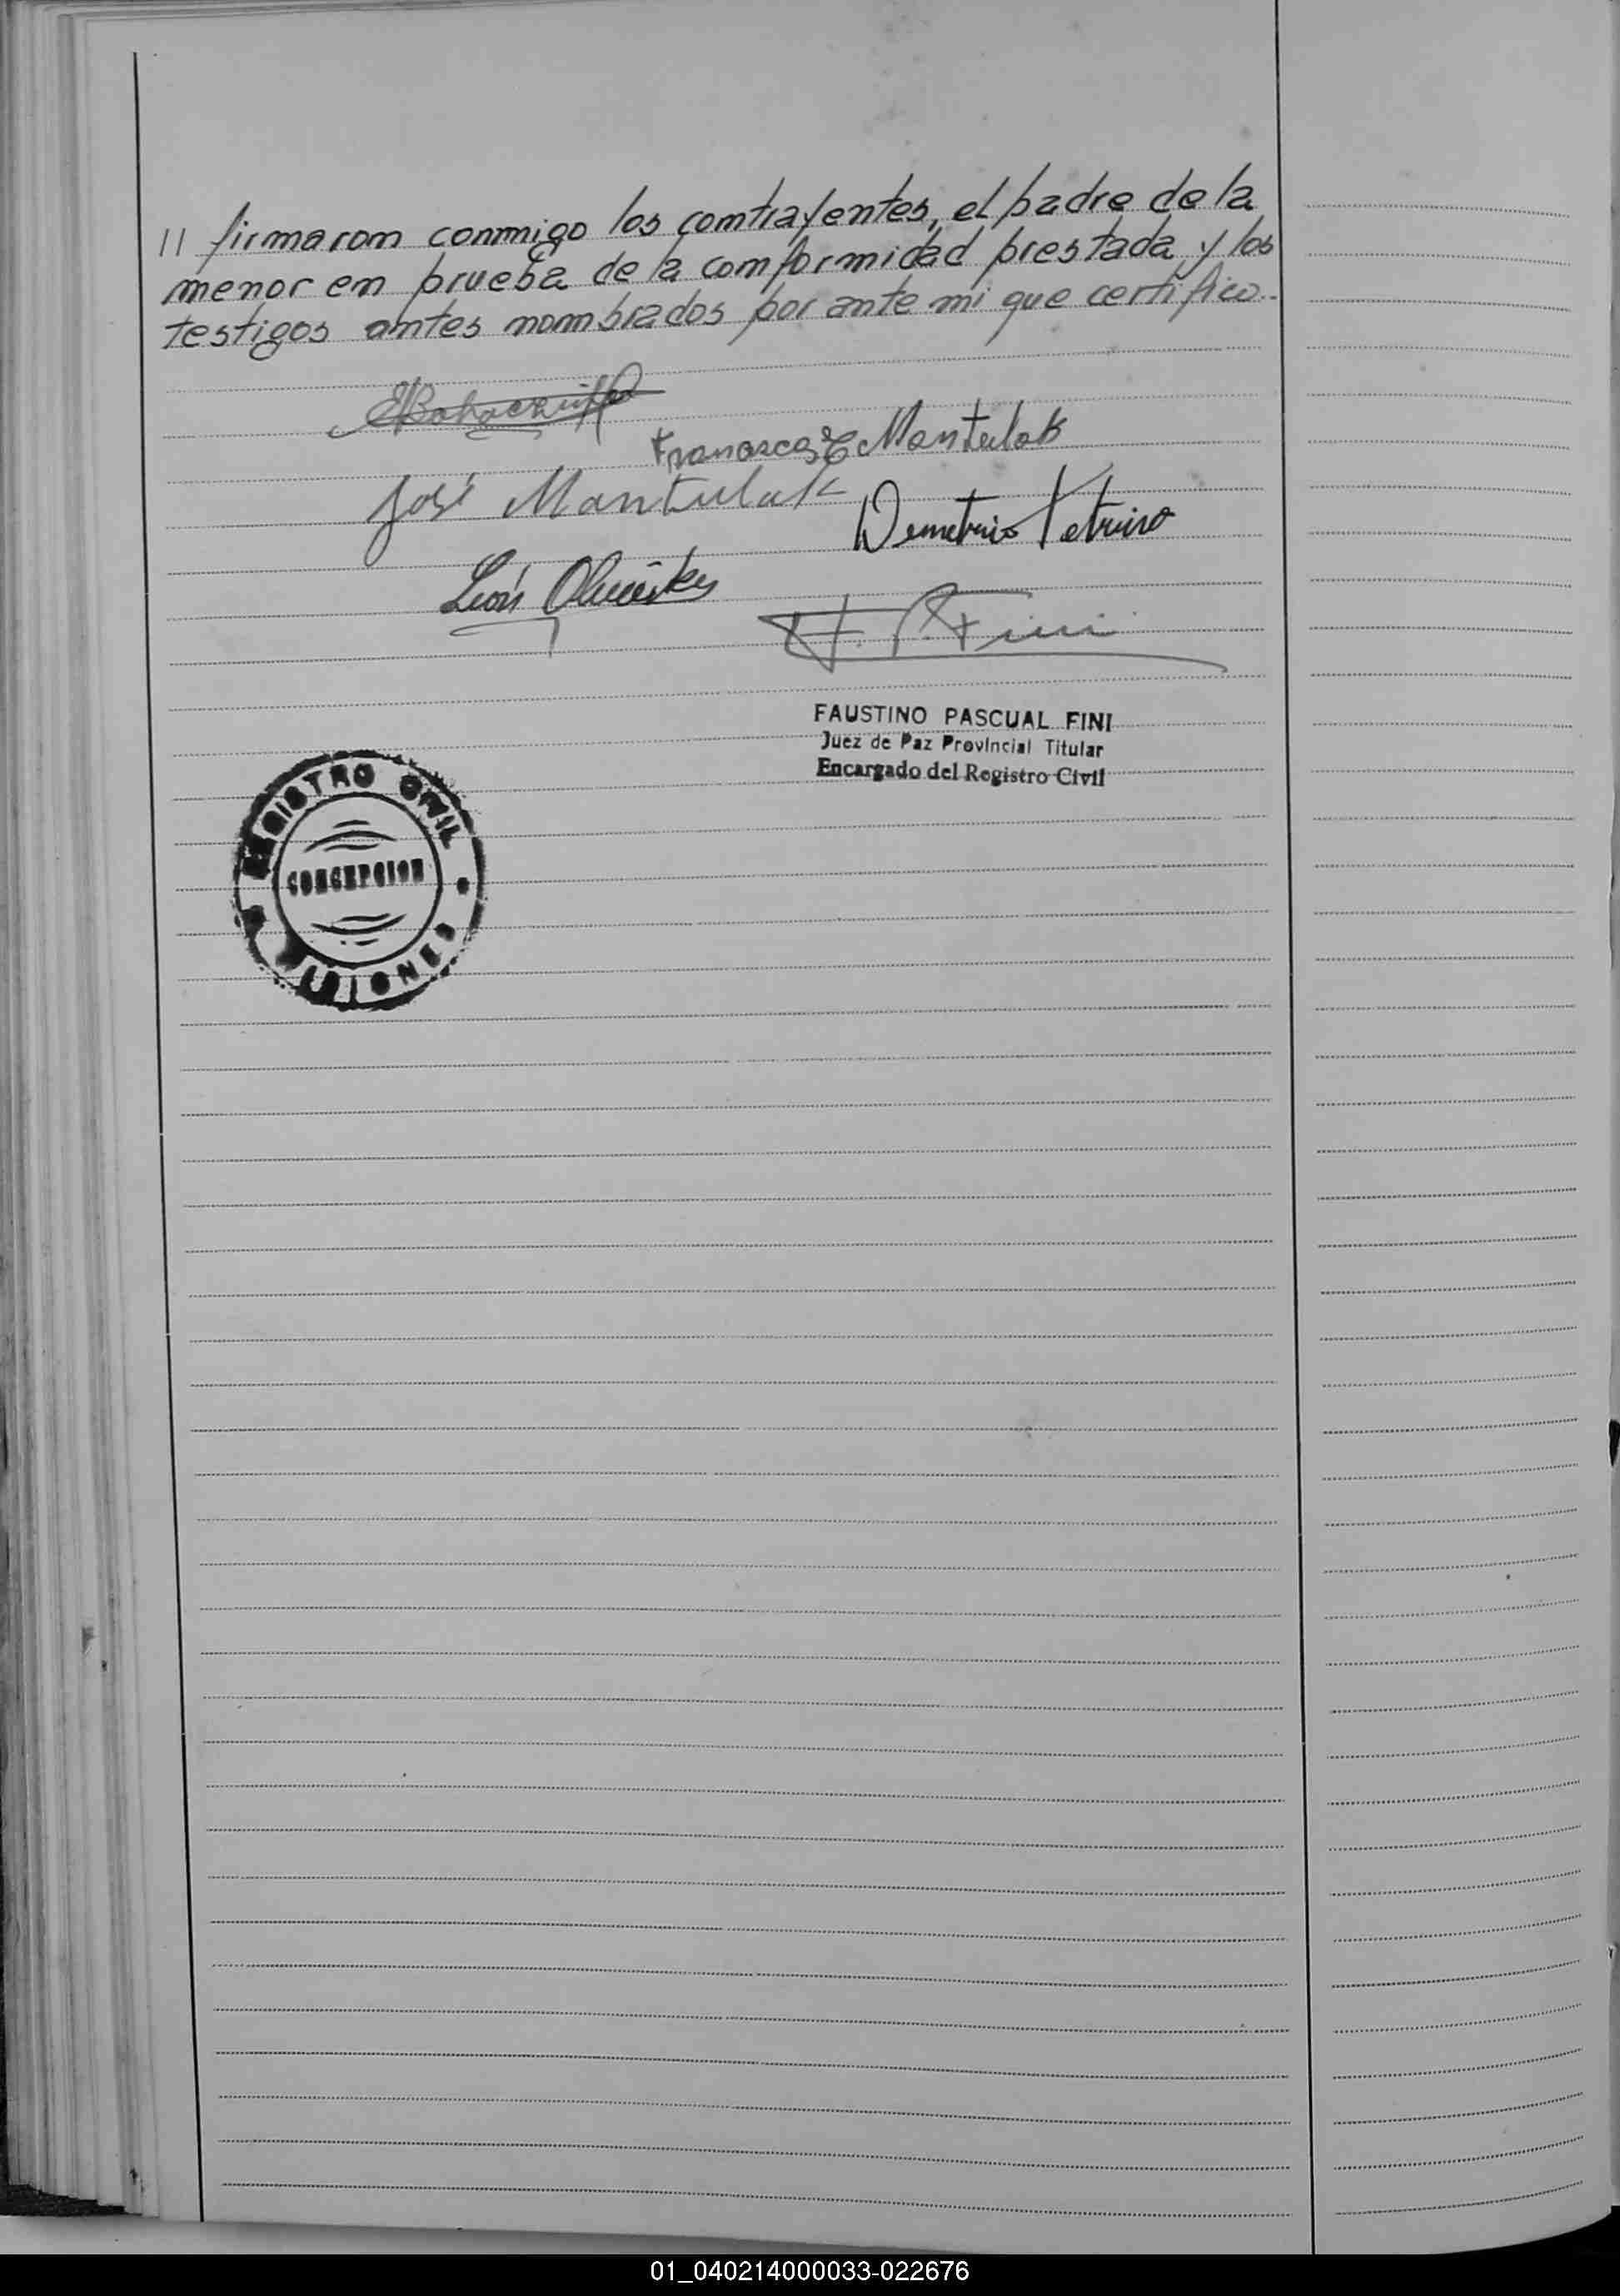 // firmarom conmigo los comtrayentes, el padre de la
menor em prueba de la comformidad prestada y los
testigos amtes mombrados por ante mi que certifico.-
Francisca E Mantulak
José Mantulak
Demetrio
León
F. P. Fini
FAUSTINO PASCUAL FINI
Juez de Paz Provincial Titular
Encargado del Registro Civil
REGISTRO CIVIL
CONCEPCION
MISIONES
01_040214000033-022676